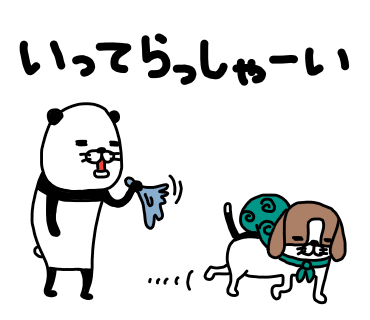 いってらっしゃーい